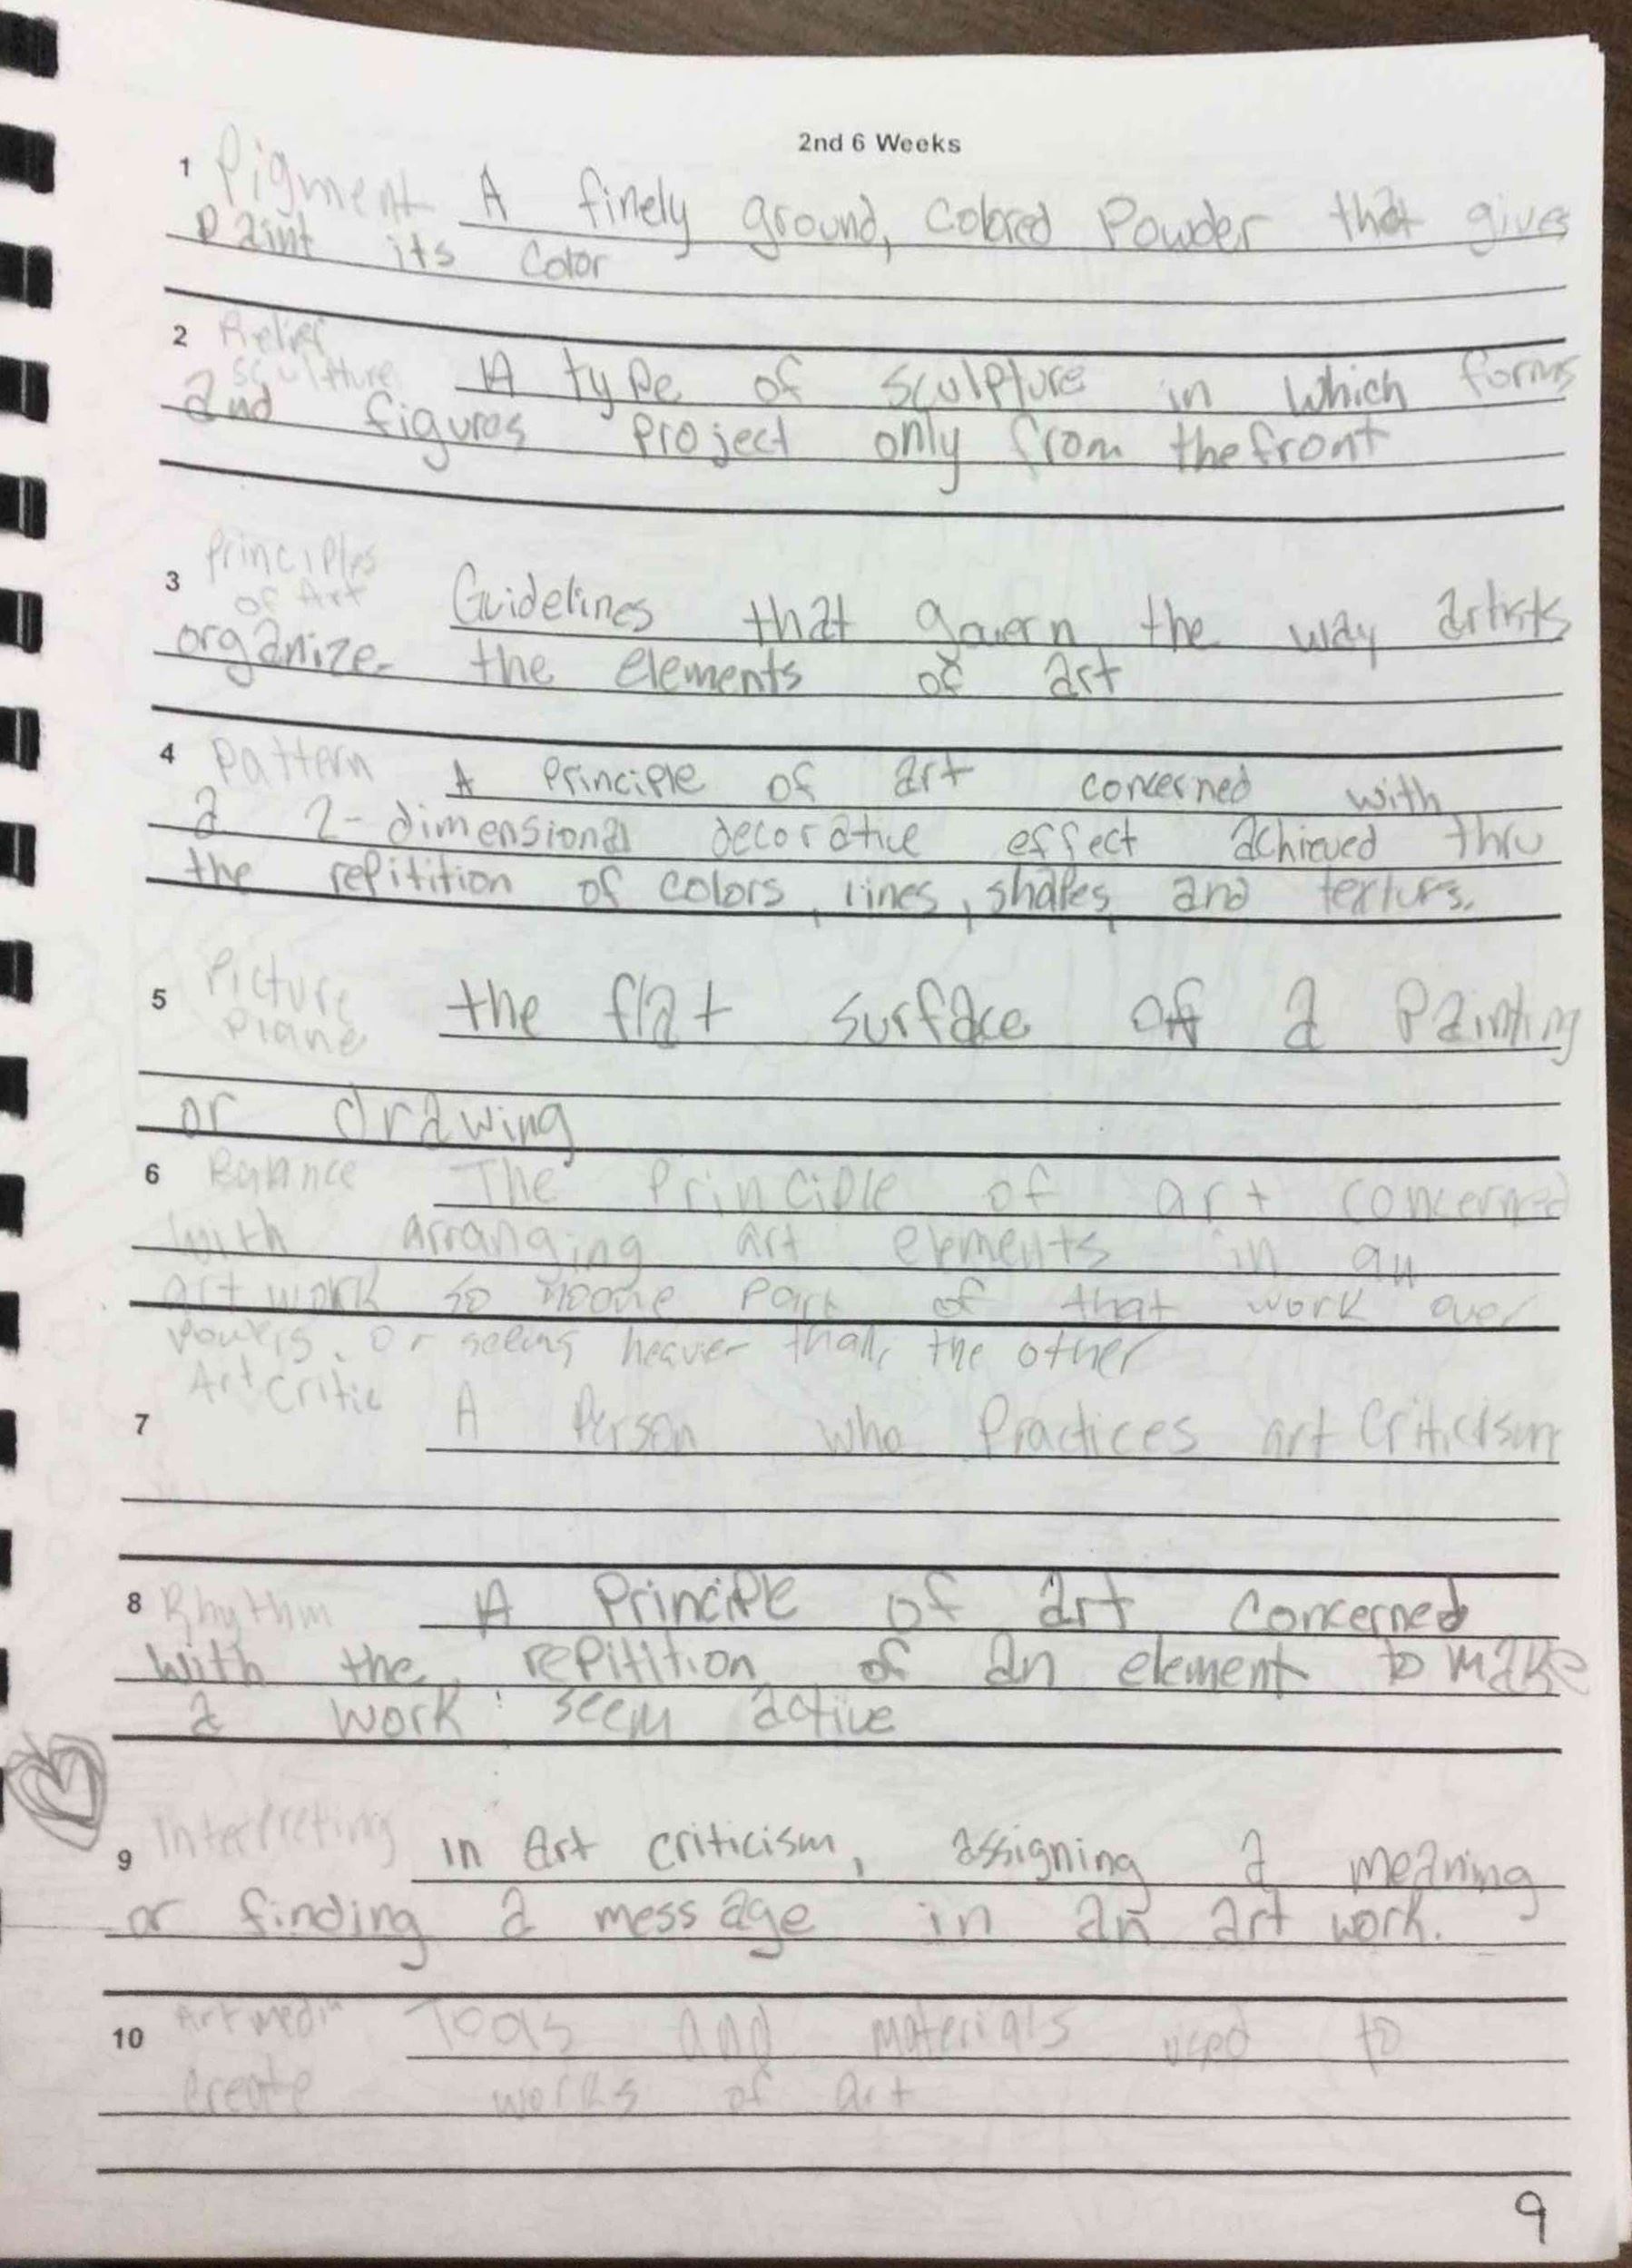 2nd 6 Weeks
1 Pigment A finely ground, colored Powder that gives
paint its color
2 Relief
sculpture A type of sculpture in which forms
and figures project only from the front
3 Principles
of Art Guidelines that govern the way artists
organize the elements of art
4 Pattern A Principle of art concerned with
a 2-dimensional decorative effect achieved thru
the repitition of colors, lines, shapes, and texturs.
5 Picture
Plane the flat surface of a Painting
or drawing
6 Balance The Principle of art concerned
with arranging art elements in an
art work so noone part of that work over
powers, or seems heavier than, the other
Art Critic
7 A Person who Practices art Criticism
8 Rhythm A Principle of art concerned
with the repitition of an element to make
a work seem active
9 Interpreting in Art criticism, assigning a meaning
or finding a message in an art work.
10 Art media Tools and materials used to
create works of art
9